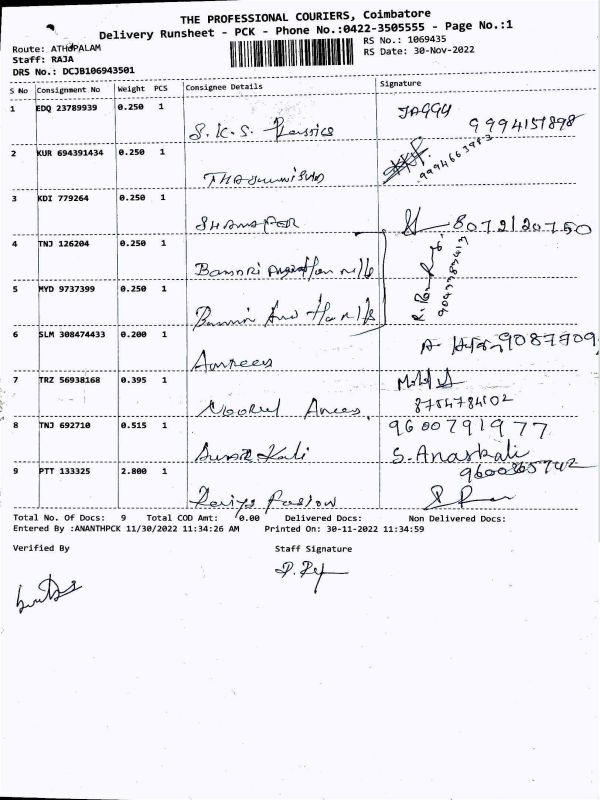 THE PROFESSIONAL COURIERS, Coimbatore
Delivery Runsheet - PCK - Phone No.:0422-3505555 - Page No.:1
Route: ATHUPALAM RS No.: 1069435
Staff: RAJA RS Date: 30-Nov-2022
DRS No.: DCJB106943501
S No Consignment No Weight PCS Consignee Details Signature
1 EDQ 23789939 0.250 1 S.K.S. Plassics JAGGU 9994157898
2 KUR 694391434 0.250 1
3 KDI 779264 0.250 1 8072120750
4 TNJ 126204 0.250 1 Bannari mills
5 MYD 9737399 0.250 1
6 SLM 308474433 0.200 1 9087709
7 TRZ 56938168 0.395 1 Noorul Anees. 8754784102
8 TNJ 692710 0.515 1 9600791977
S. Anaskali
9 PTT 133325 2.800 1 9600865742
Total No. Of Docs: 9 Total COD Amt: 0.00 Delivered Docs: Non Delivered Docs:
Entered By :ANANTHPCK 11/30/2022 11:34:26 AM Printed On: 30-11-2022 11:34:59
Verified By Staff Signature